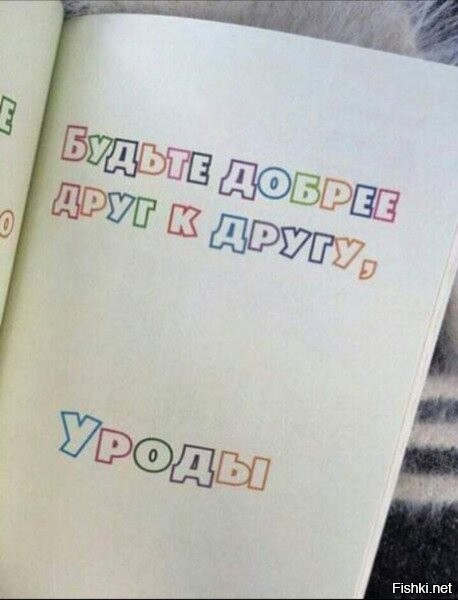 Е
О
Будьте добрее
друг к другу,
Уроды
Fishki.net